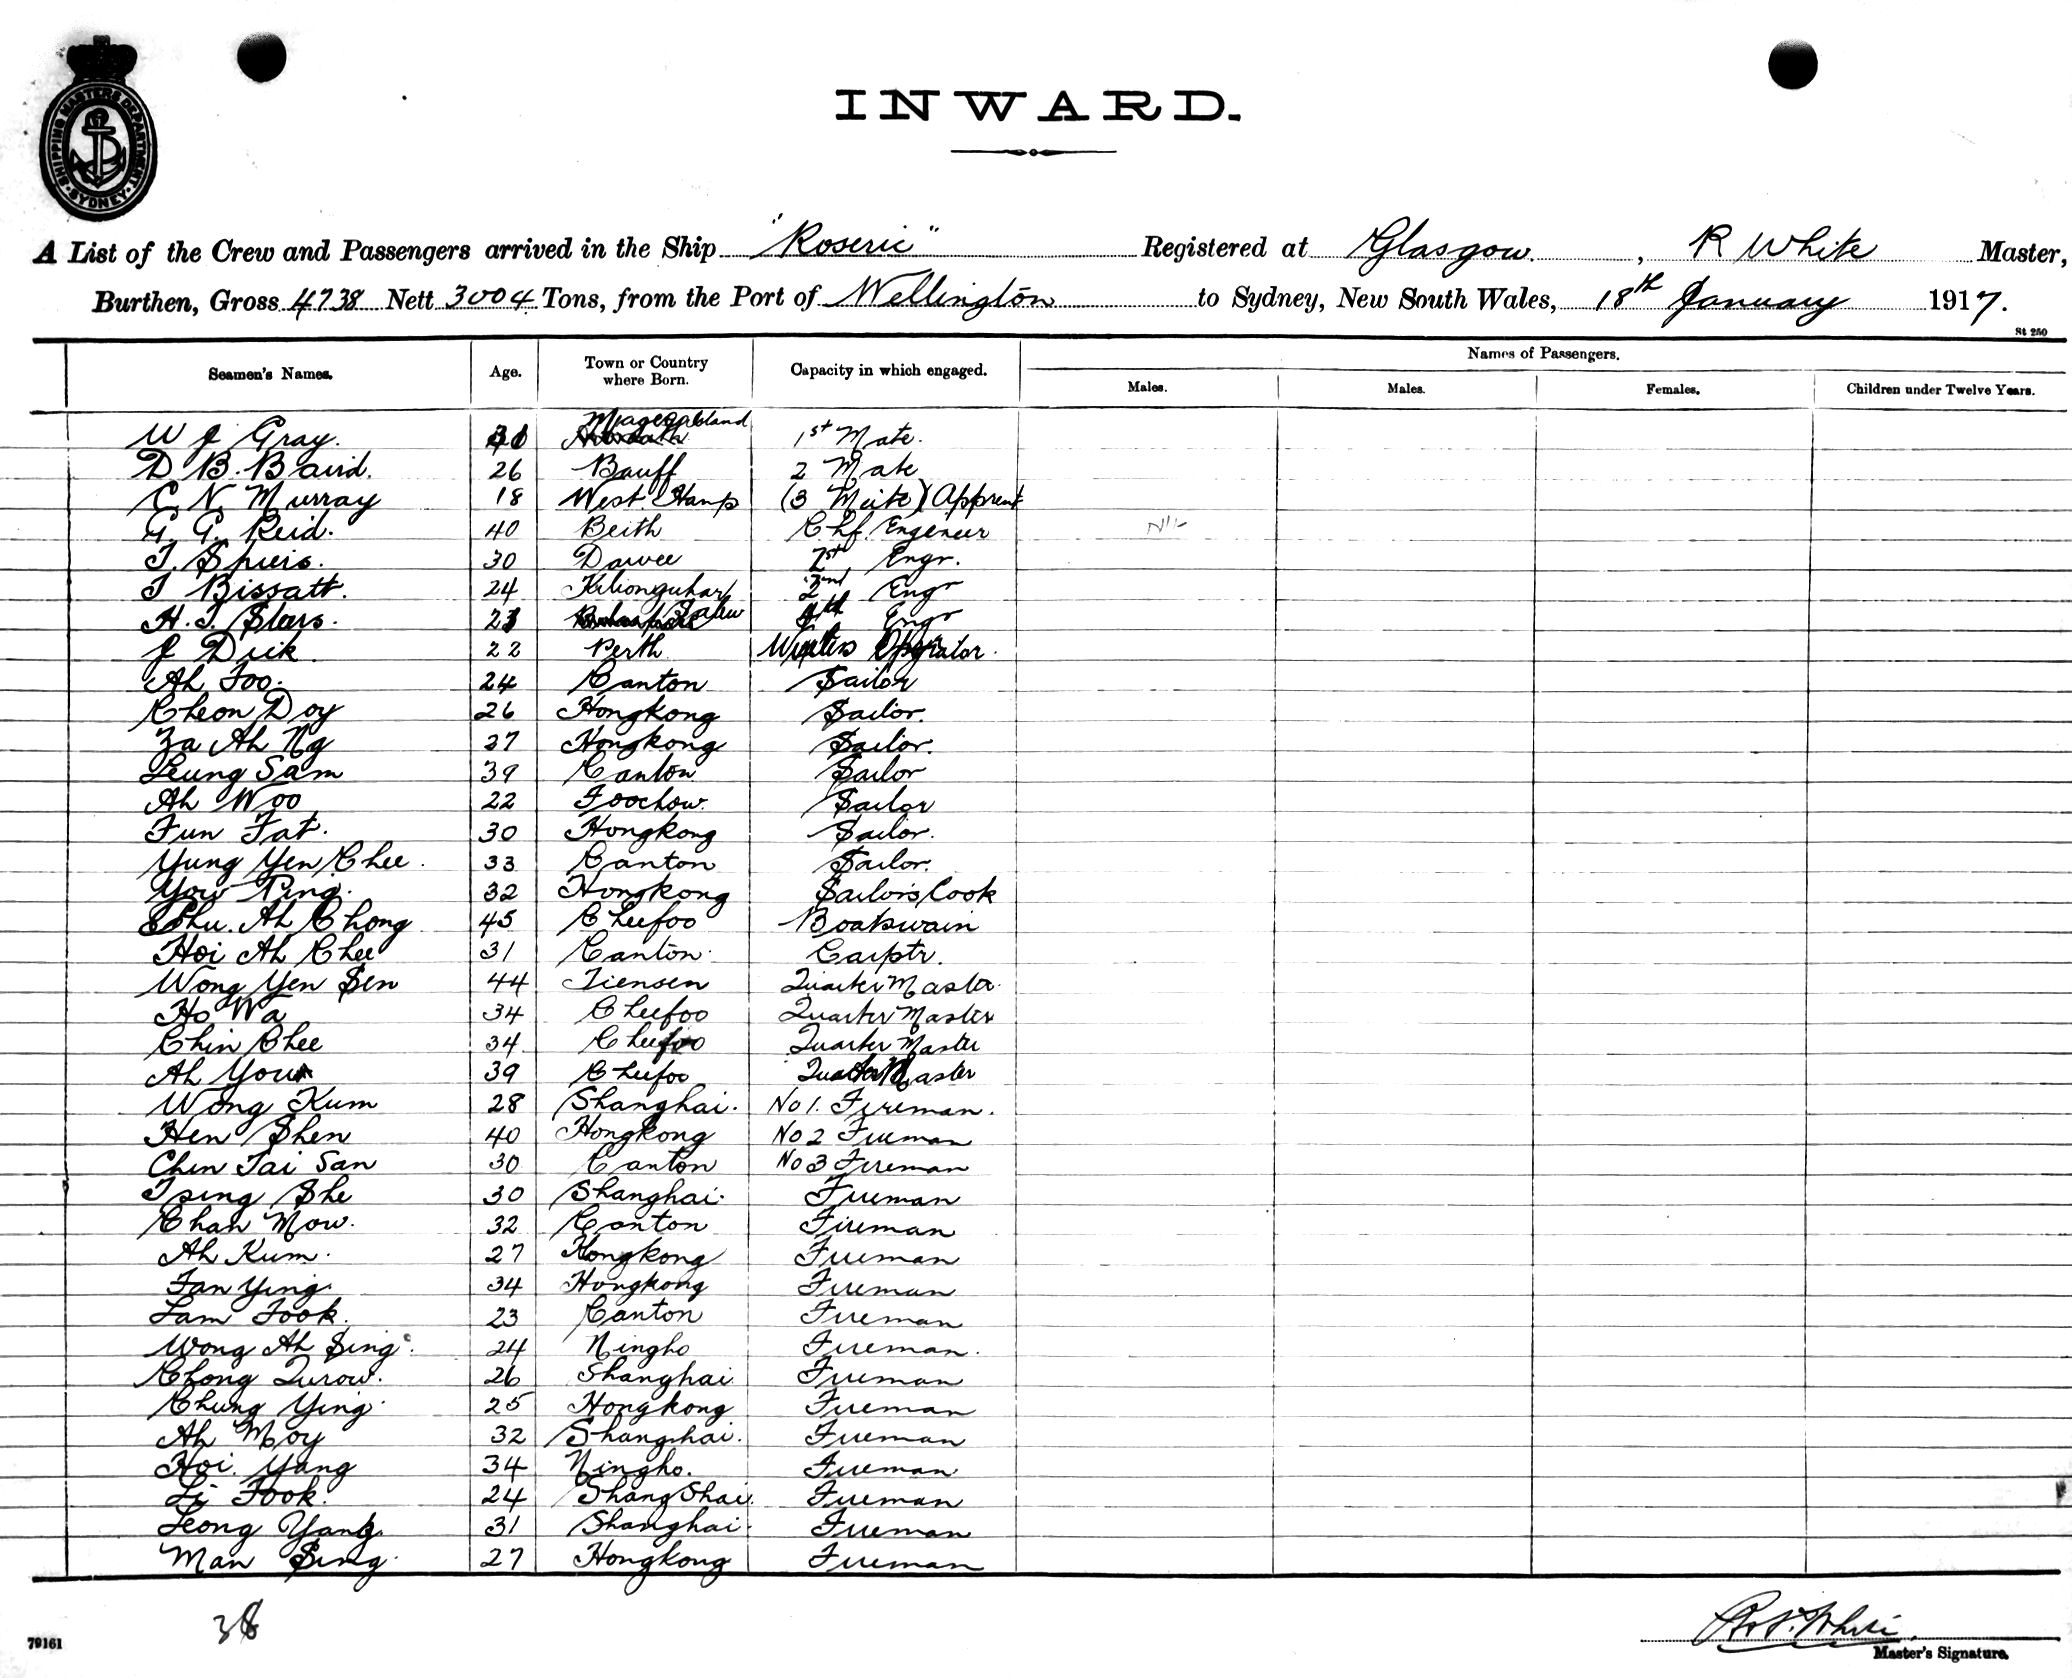 SHIPPING MASTERS DEPARTMENT
SYDNEY
INWARD.
A List of the Crew and Passengers arrived in the Ship "Roseric" Registered at Glasgow, R White Master,
Burthen, Gross 4738 Nett 3004 Tons, from the Port of Wellington to Sydney, New South Wales, 18th January 1917.
St 250
Seamen's Names. Age. Town or Country where Born. Capacity in which engaged. Names of Passengers.
Males. Males. Females. Children under Twelve Years.
W J Gray. 1st Mate.
D B. Baird. 26 Banff 2 Mate
C. N. Murray 18 West Hamp (3 Mate) Apprent
G. G. Reid. 40 Beith Chf. Engeneer Nil
T. Spiers. 30 Engr.
T Bissatt. 24 Engr
H. T. 4th Engr
J Dick 22 Perth Operator.
Ah Foo. 24 Canton Sailor
Cheon Doy 26 Hongkong Sailor.
Za Ah Ng 37 Hongkong Sailor.
Leung Sam 39 Canton Sailor
Ah Woo 22 Foochow. Sailor
Fun Fat. 30 Hongkong Sailor.
Yung Yen Chee. 33 Canton Sailor.
Yow Ping. 32 Hongkong Sailors Cook
Shu. Ah Chong 45 Cheefoo Boatswain
Hoi Ah Chee 31 Canton. Carptr.
Wong Yen Sen 44 Tiensen Quarter Master.
Ho Wa 34 Cheefoo Quarter Master
Chin Chee 34 Cheefoo Quarter Master
Ah You 39 Cheefoo Quarter Master
Wong Kum 28 Shanghai. No 1. Fireman.
Hen Shen 40 Hongkong No 2 Fireman
Chen Tai San 30 Canton No 3 Fireman
Tsing She 30 Shanghai. Fireman
Chan Mow. 32 Canton Fireman
Ah Kum. 27 Hongkong Fireman
Fan Ying. 34 Hongkong Fireman
Lam Fook. 23 Canton Fireman
Wong Ah Sing. 24 Ningho Fireman.
Chong Qurow. 26 Shanghai Fireman
Chung Ying. 25 Hongkong Fireman
Ah Moy 32 Shanghai. Fireman
Hoi. Yang 34 Ningho. Fireman
Li Fook. 24 Shang Shai. Fireman
Leong Yang 31 Shanghai. Fireman
Man Sing. 27 Hongkong Fireman
38
79161
Master's Signature.